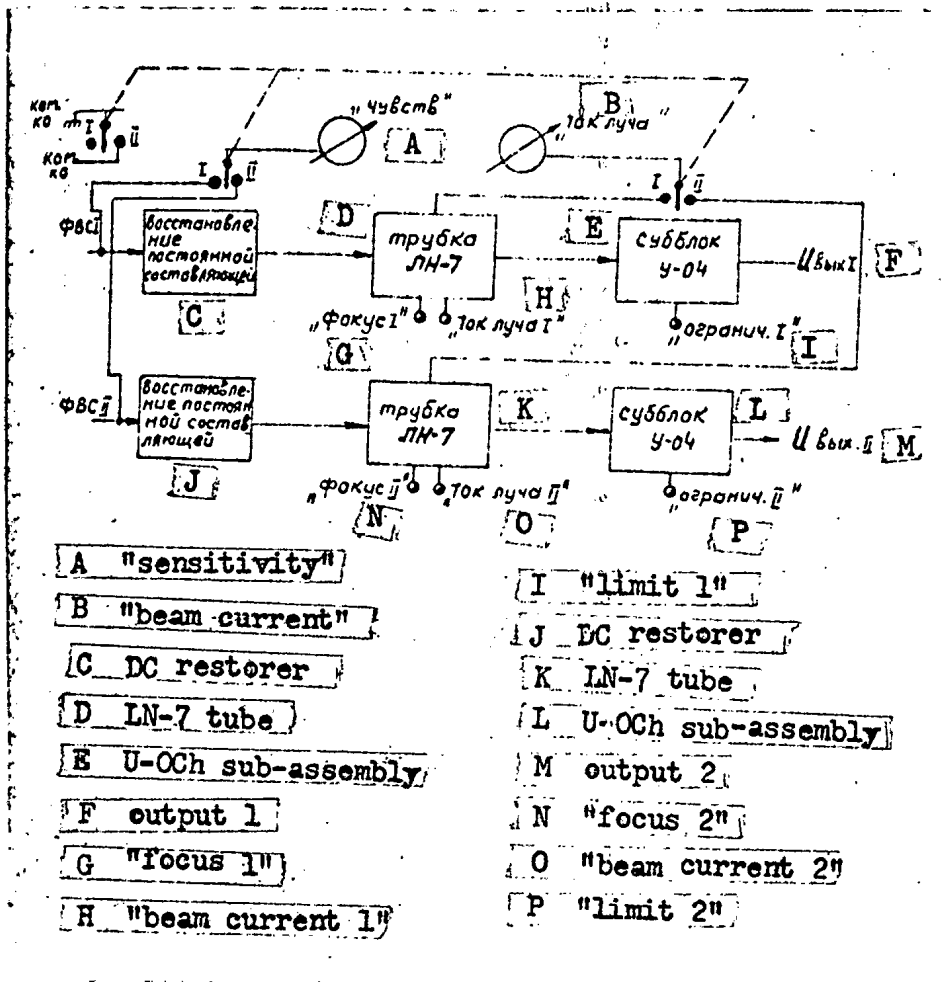 B
„чувств"
„Ток луча"
A
I
II
I
II
I
II
ФВСI
восстановле-
ние
постоянной
составляющей
D
трубка
ЛН-7
E
субблок
У-04
U вых I
F
C
H
„Фокус I"
„Ток луча I"
„огранич. I"
I
G
ФВС II
восстановле-
ние постоян
ной состав
ляющей
трубка
ЛН-7
K
субблок
У-04
L
U вых. II
M
J
„Фокус II"
„Ток луча II"
„огранич. II"
N
O
P
A "sensitivity"
B "beam current"
C DC restorer
D LN-7 tube
E U-OCh sub-assembly
F output 1
G "focus 1"
H "beam current 1"
I "limit 1"
J DC restorer
K LN-7 tube
L U-OCh sub-assembly
M output 2
N "focus 2"
O "beam current 2"
P "limit 2"